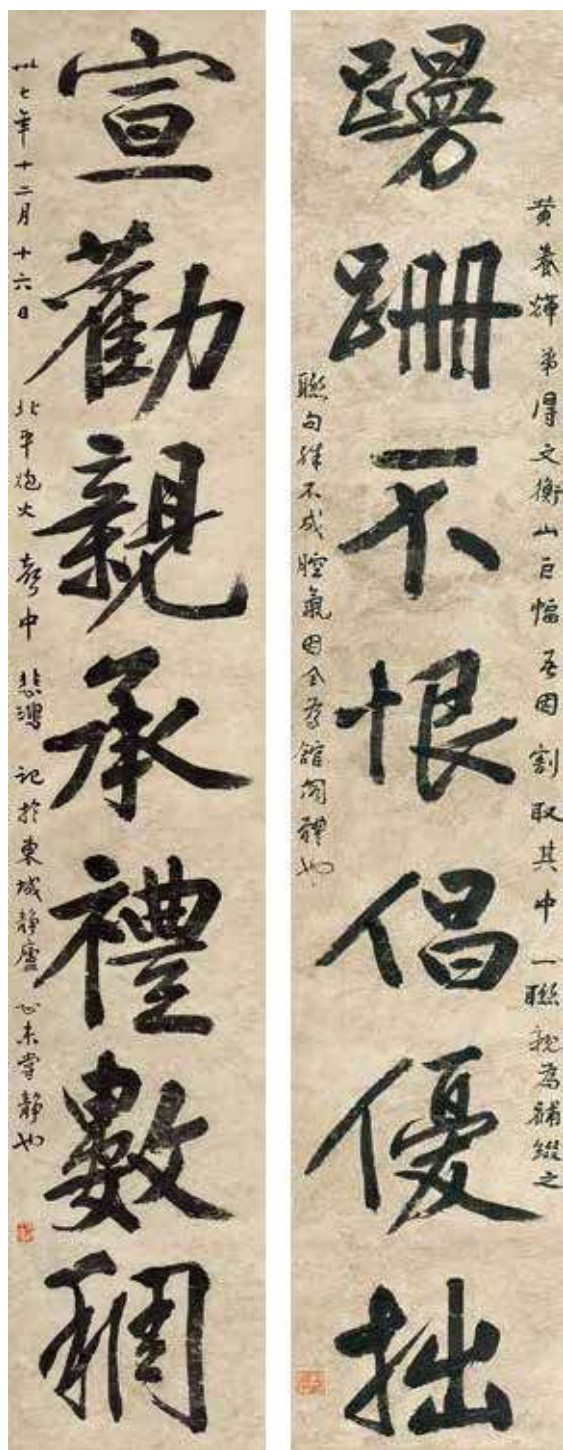 躞跚不恨倡優拙
黄養輝弟得文衡山巨幅吾因割取其中一聯親為補綴之
聯句殊不成腔氣因全為館閣體也
宣勸親承禮數稠
卅七年十二月十六日北平炮火聲中悲鴻記於東城靜廬心未嘗靜也